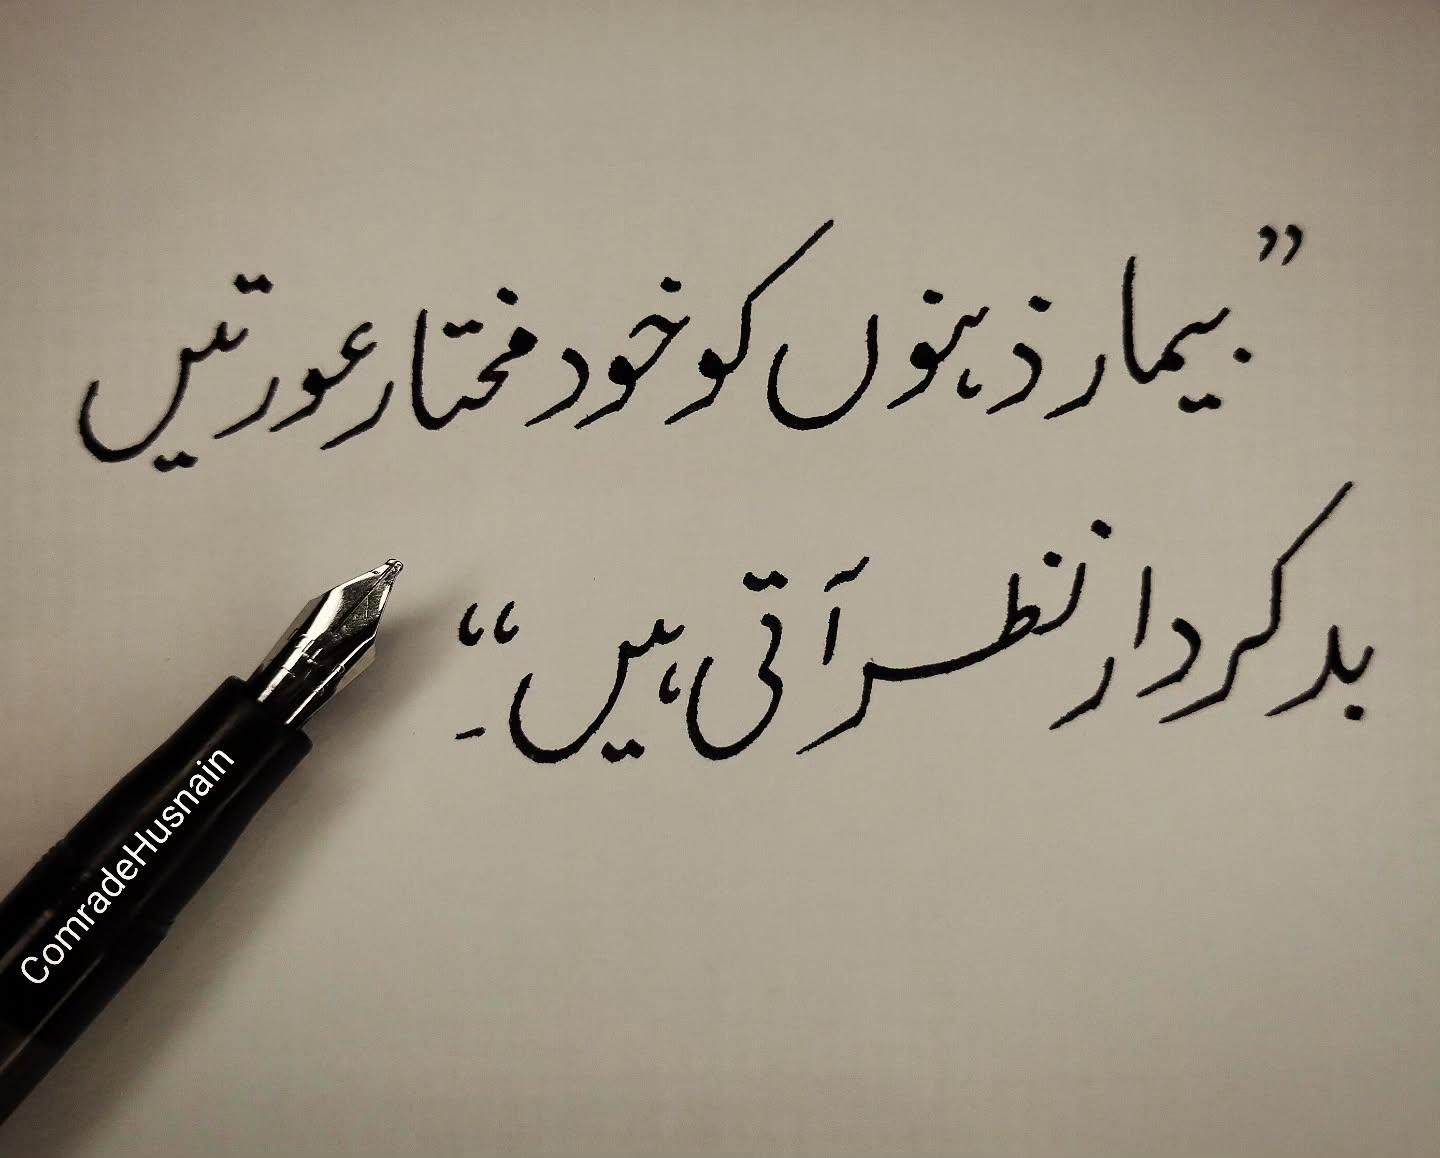 ”بیمار ذہنوں کو خود مختار عورتیں
بدکردار نظر آتی ہیں“۔
ComradeHusnain